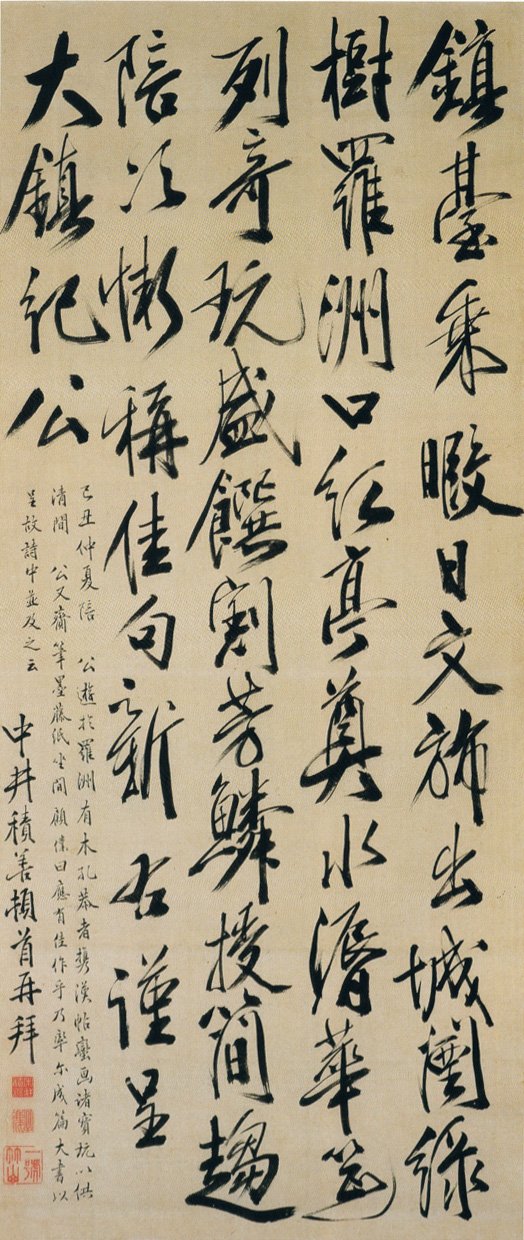 鎮臺乘暇日文旆出城闉綠
樹羅洲口紅亭奠水漘華筵
列奇玩盛饌割芳鱗授簡趨
陪次慚稱佳句新 右謹呈
大鎮紀公
己丑仲夏陪 公遊於羅洲有木孔恭者携漢帖蠻画諸寳玩以供
清間 公又齎筆墨藤紙坐間顧僕曰應有佳作乎乃率尓成篇大書以
呈故詩中並及之云
中井積善頓首再拜
一號竹山